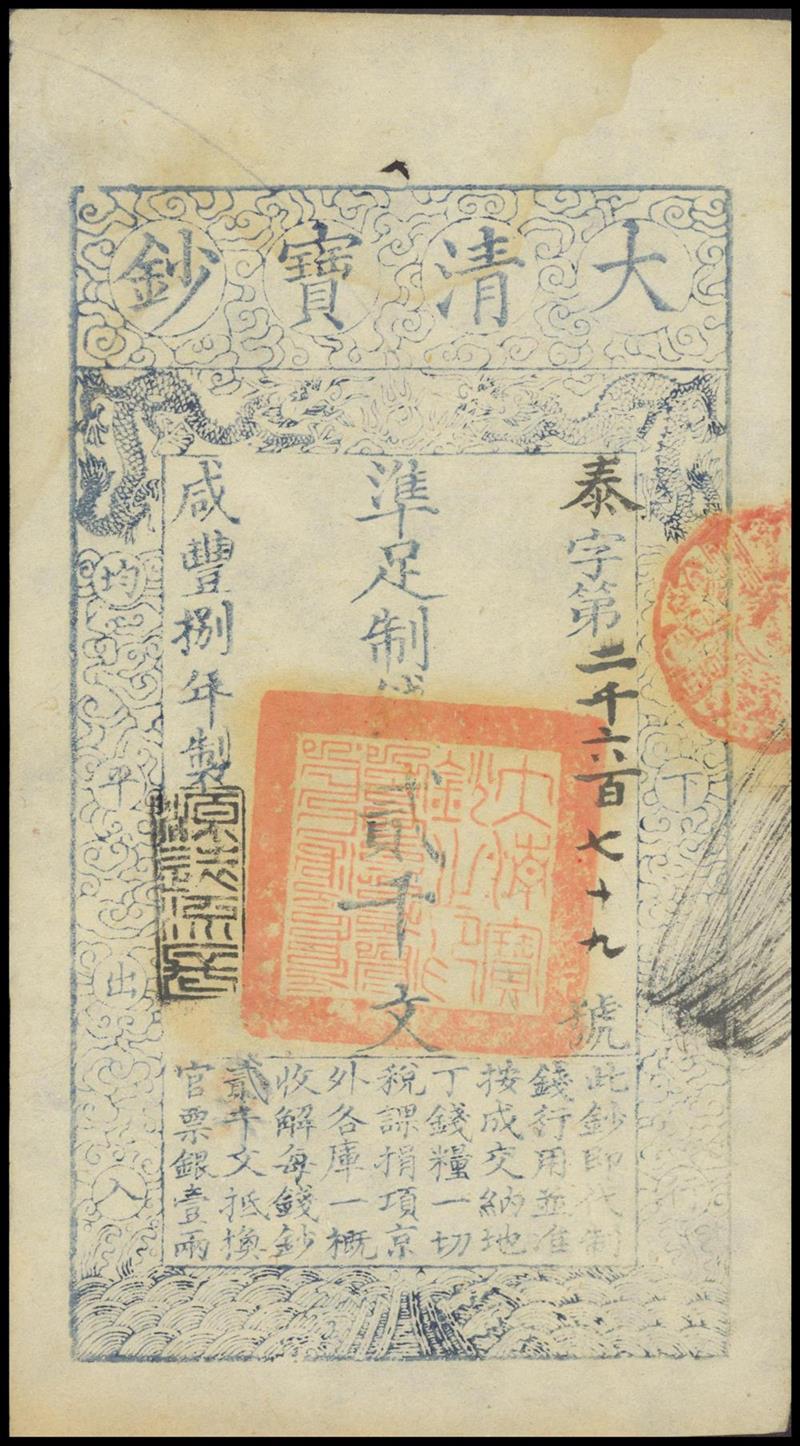 大清寶鈔
泰字第二千六百七十九號
準足制錢貳千文
咸豐捌年製
下
均平出入
此鈔即代制
錢行用並准
按成交納地
丁錢糧一切
稅課捐項京
外各庫一概
收解每錢鈔
貳千文抵換
官票銀壹兩
大清寶鈔之印
源遠流長